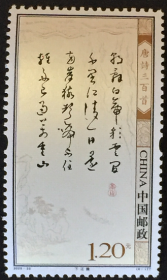 朝辞白帝彩云间
千里江陵一日还
两岸猿声啼不住
轻舟已过万重山
唐诗三百首
CHINA 中国邮政
1.20元